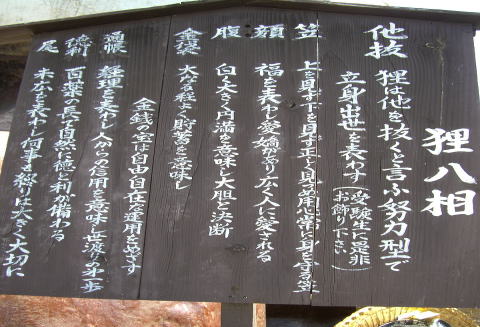 狸八相
他抜 狸は他を抜くと言ふ努力型で
立身出世を表わす(受験生に是非お飾り下さい)
笠 上を見ず下を見ず正しく見る用心常に身を守る笠
顔 福を表わし愛嬌があり広く人に愛される
腹 白く大きく円満を意味し大胆と決断
金袋 大なる程よく貯蓄を意味し
金銭の宝は自由自在な運用をめざす
通帳 経理を表わし人からの信用を意味し世渡りの第一歩
徳利 百薬の長で自然に徳と利が備わる
尾 末なを表わし何事も終りは大きく大切に